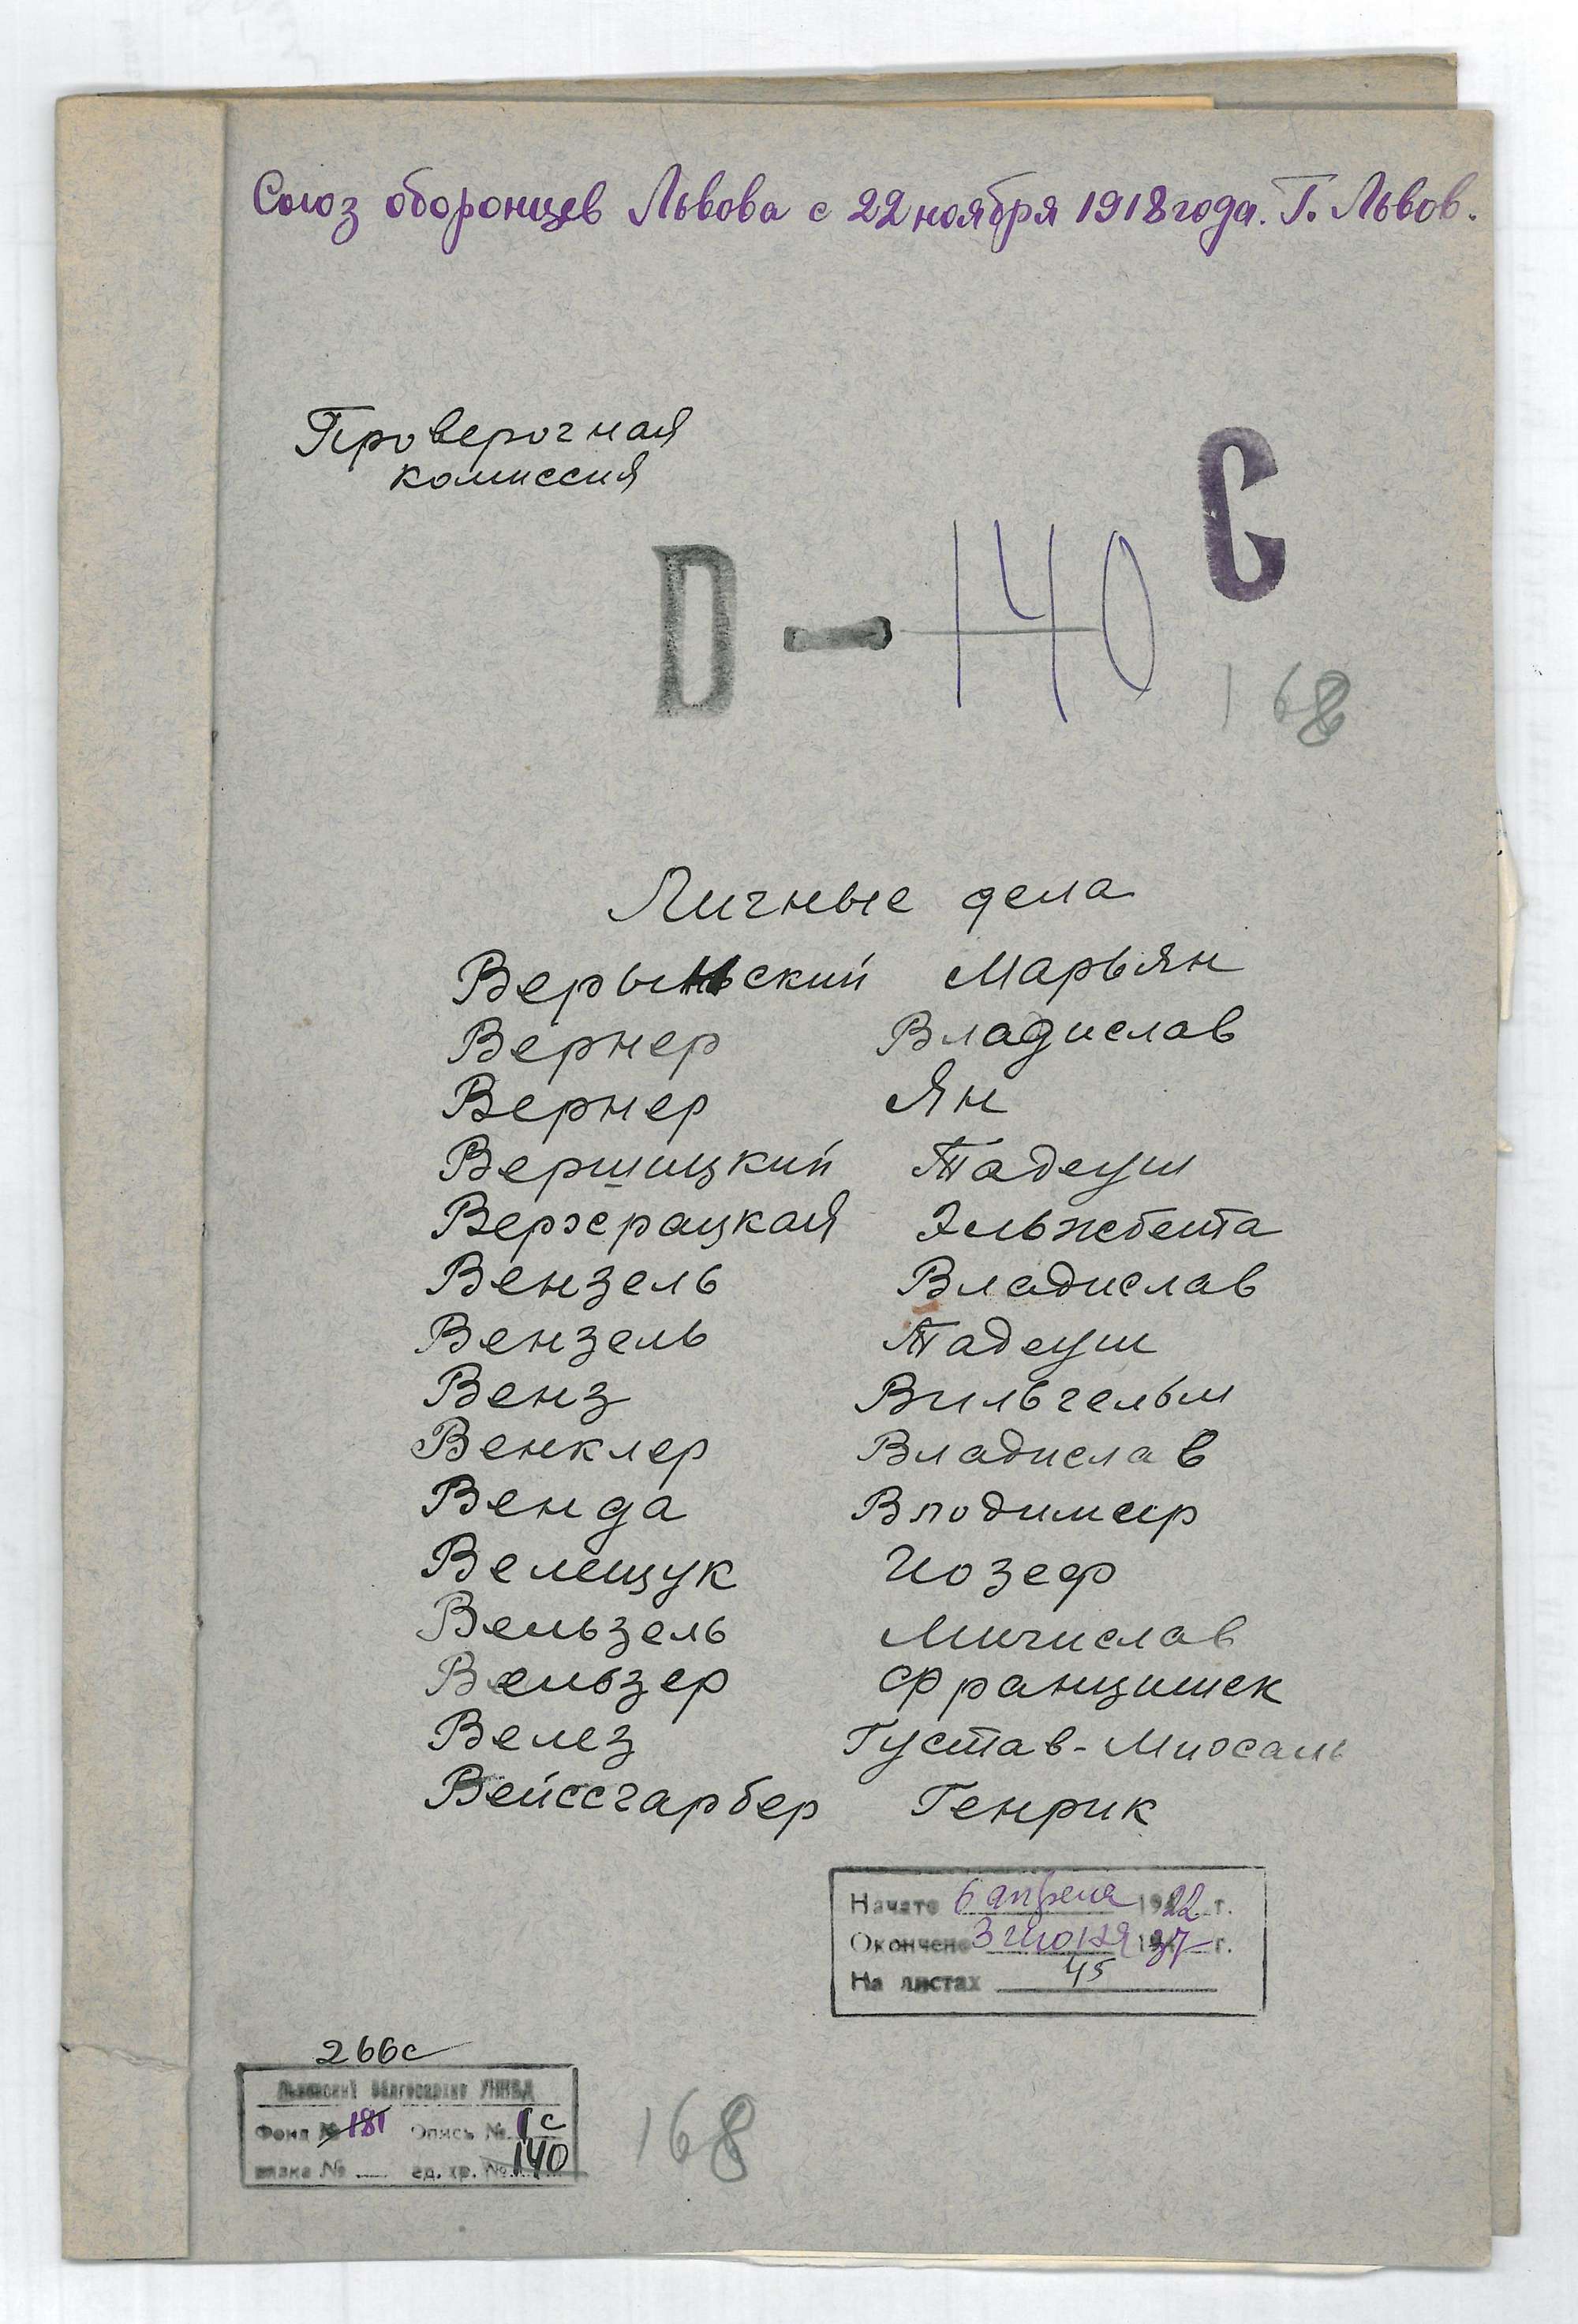 Союз оборонцев Львова с 22 ноября 1918 года. Г. Львов.
Проверочная
комиссия
С
D - 140
168
Личные дела
Верыньский Марьян
Вернер Владислав
Вернер Ян
Вершицкий Тадеуш
Верхрацкая Эльжбета
Вензель Владислав
Вензель Тадеуш
Венз Вильгельм
Венклер Владислав
Венда Влодимеир
Велещук Иозеф
Вельзель Мичислав
Вельзер Францишек
Велез Густав-
Вейссгарбер Генрик
Начато 6 апреля 1922 г.
Окончено 3 июня 1937 г.
На листах 45
266с
Львовский Облгосархив УНКВД
Фонд № 181 Опись № 1с
вязка № ед. хр. № 140
168